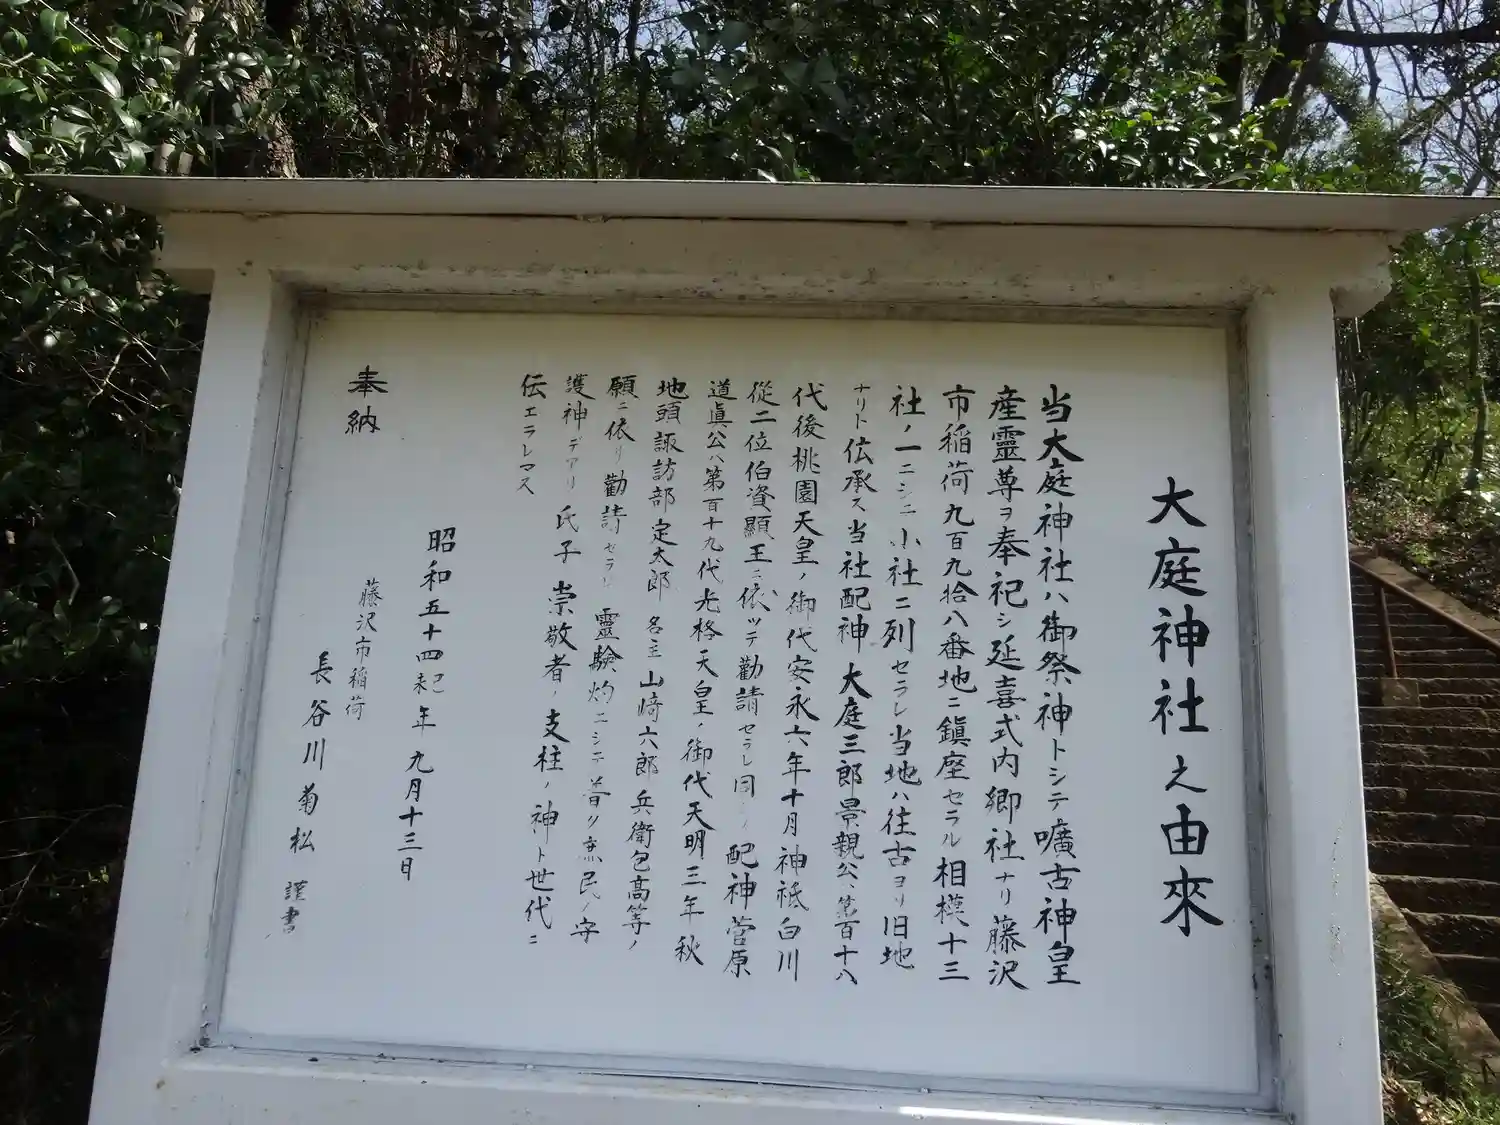 大庭神社之由來
当大庭神社ハ御祭神トシテ曠古神皇
産霊尊ヲ奉祀シ延喜式内郷社ナリ藤沢
市稲荷九百九拾八番地ニ鎮座セラル相模十三
社ノ一ニシテ小社ニ列セラレ当地ハ往古ヨリ旧地
ナリト伝承ス当社配神大庭三郎景親公、第百十八
代後桃園天皇ノ御代安永六年十月神祇白川
従二位伯資顯王ニ依ツテ勸請セラレ同ノ配神菅原
道眞公ハ第百十九代光格天皇ノ御代天明三年秋
地頭諏訪部定太郎名主山﨑六郎兵衛包高等ノ
願ニ依リ勸請セラレ靈験灼ニシテ普ク庶民ノ守
護神デアリ氏子崇敬者ノ支柱ノ神ト世代ニ
伝エラレマス
昭和五十四己未年九月十三日
藤沢市稲荷
奉納 長谷川菊松 謹書